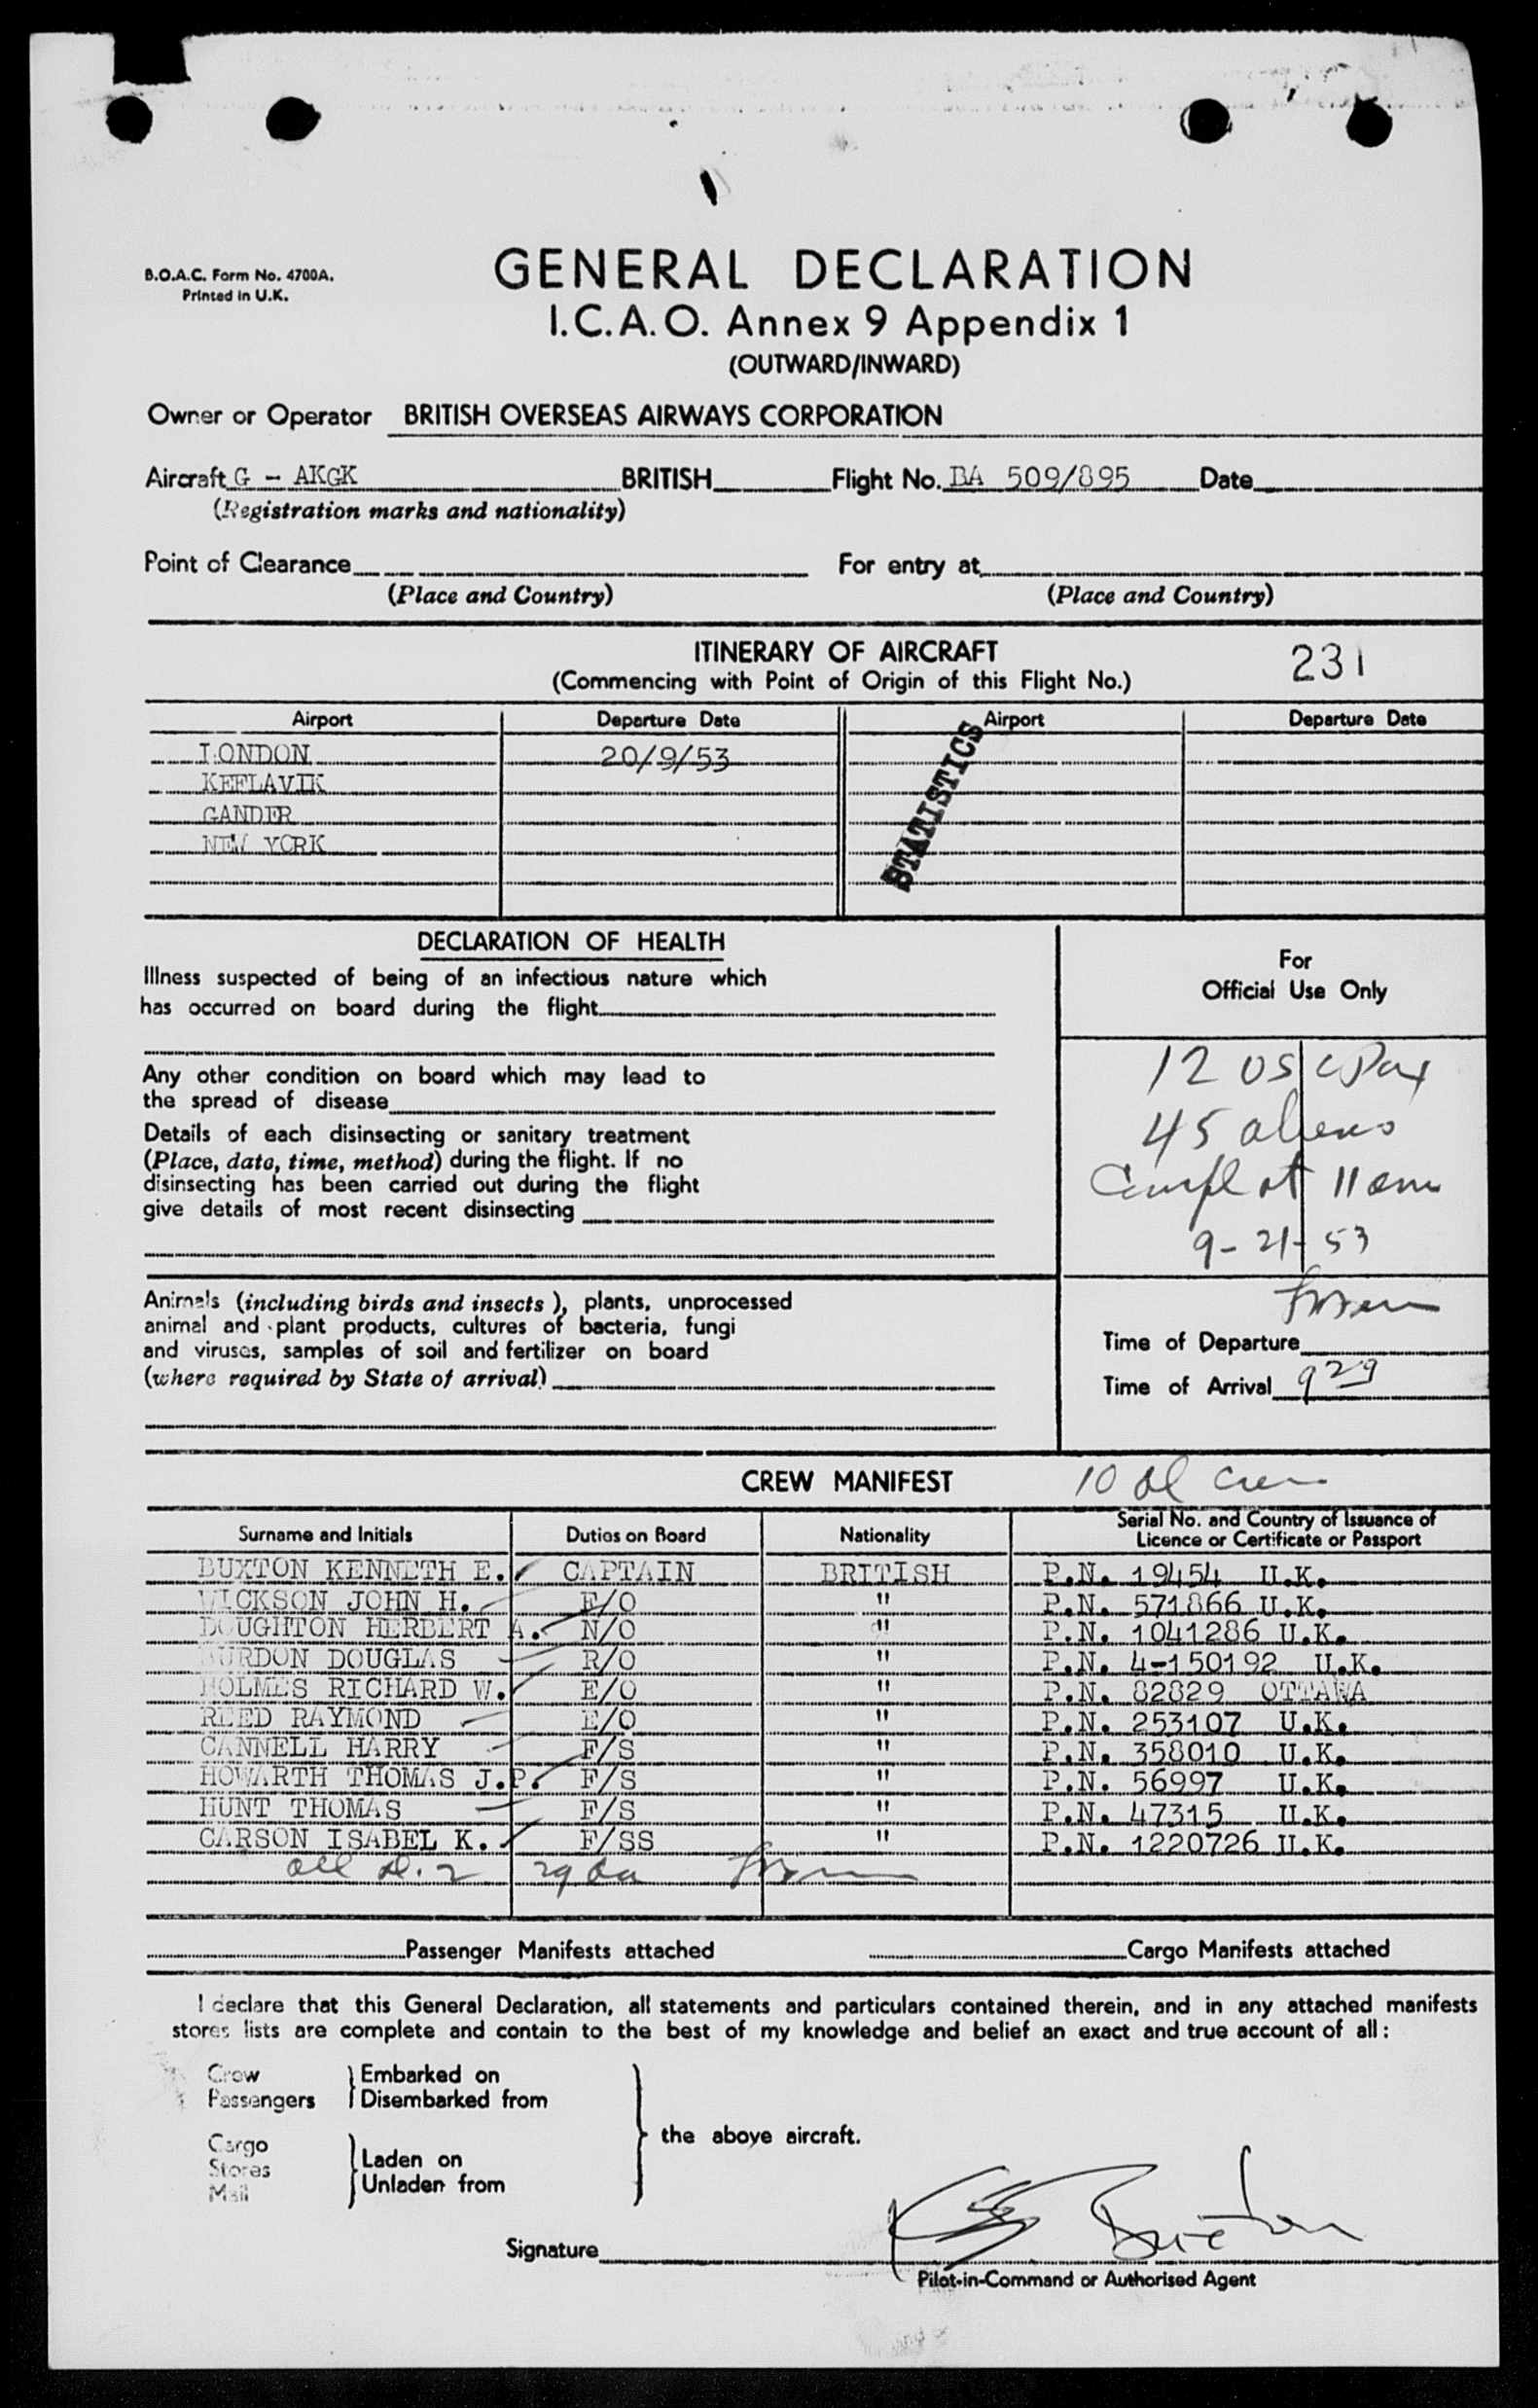 B.O.A.C. Form No. 4700A.
Printed in U.K.
GENERAL DECLARATION
I.C.A.O. Annex 9 Appendix 1
(OUTWARD/INWARD)
Owner or Operator BRITISH OVERSEAS AIRWAYS CORPORATION
Aircraft G - AKGK BRITISH Flight No. BA 509/895 Date
(Registration marks and nationality)
Point of Clearance For entry at
(Place and Country) (Place and Country)
ITINERARY OF AIRCRAFT
(Commencing with Point of Origin of this Flight No.)
231
Airport Departure Date Airport Departure Date
LONDON 20/9/53
KEFLAVIK
GANDER
NEW YORK
STATISTICS
DECLARATION OF HEALTH
Illness suspected of being of an infectious nature which
has occurred on board during the flight
Any other condition on board which may lead to
the spread of disease
Details of each disinsecting or sanitary treatment
(Place, date, time, method) during the flight. If no
disinsecting has been carried out during the flight
give details of most recent disinsecting
Animals (including birds and insects), plants, unprocessed
animal and plant products, cultures of bacteria, fungi
and viruses, samples of soil and fertilizer on board
(where required by State of arrival)
For
Official Use Only
12 USC Pax
45 aliens
Compl at 11 am
9-21-53
Time of Departure
Time of Arrival 929
CREW MANIFEST 10 al crew
Surname and Initials Duties on Board Nationality Serial No. and Country of Issuance of
Licence or Certificate or Passport
BUXTON KENNETH E. CAPTAIN BRITISH P.N. 19454 U.K.
WICKSON JOHN H. F/O " P.N. 571866 U.K.
DOUGHTON HERBERT A. N/O " P.N. 1041286 U.K.
BURDON DOUGLAS R/O " P.N. 4-150192 U.K.
HOLMES RICHARD W. E/O " P.N. 82829 OTTAWA
REED RAYMOND E/O " P.N. 253107 U.K.
CANNELL HARRY F/S " P.N. 358010 U.K.
HOWARTH THOMAS J.P. F/S " P.N. 56997 U.K.
HUNT THOMAS F/S " P.N. 47315 U.K.
CARSON ISABEL K. F/SS " P.N. 1220726 U.K.
all D.2 29 da
Passenger Manifests attached Cargo Manifests attached
I declare that this General Declaration, all statements and particulars contained therein, and in any attached manifests
stores lists are complete and contain to the best of my knowledge and belief an exact and true account of all :
Crew Embarked on
Passengers Disembarked from
the above aircraft.
Cargo Laden on
Stores
Mail Unladen from
Signature K E Buxton
Pilot-in-Command or Authorised Agent